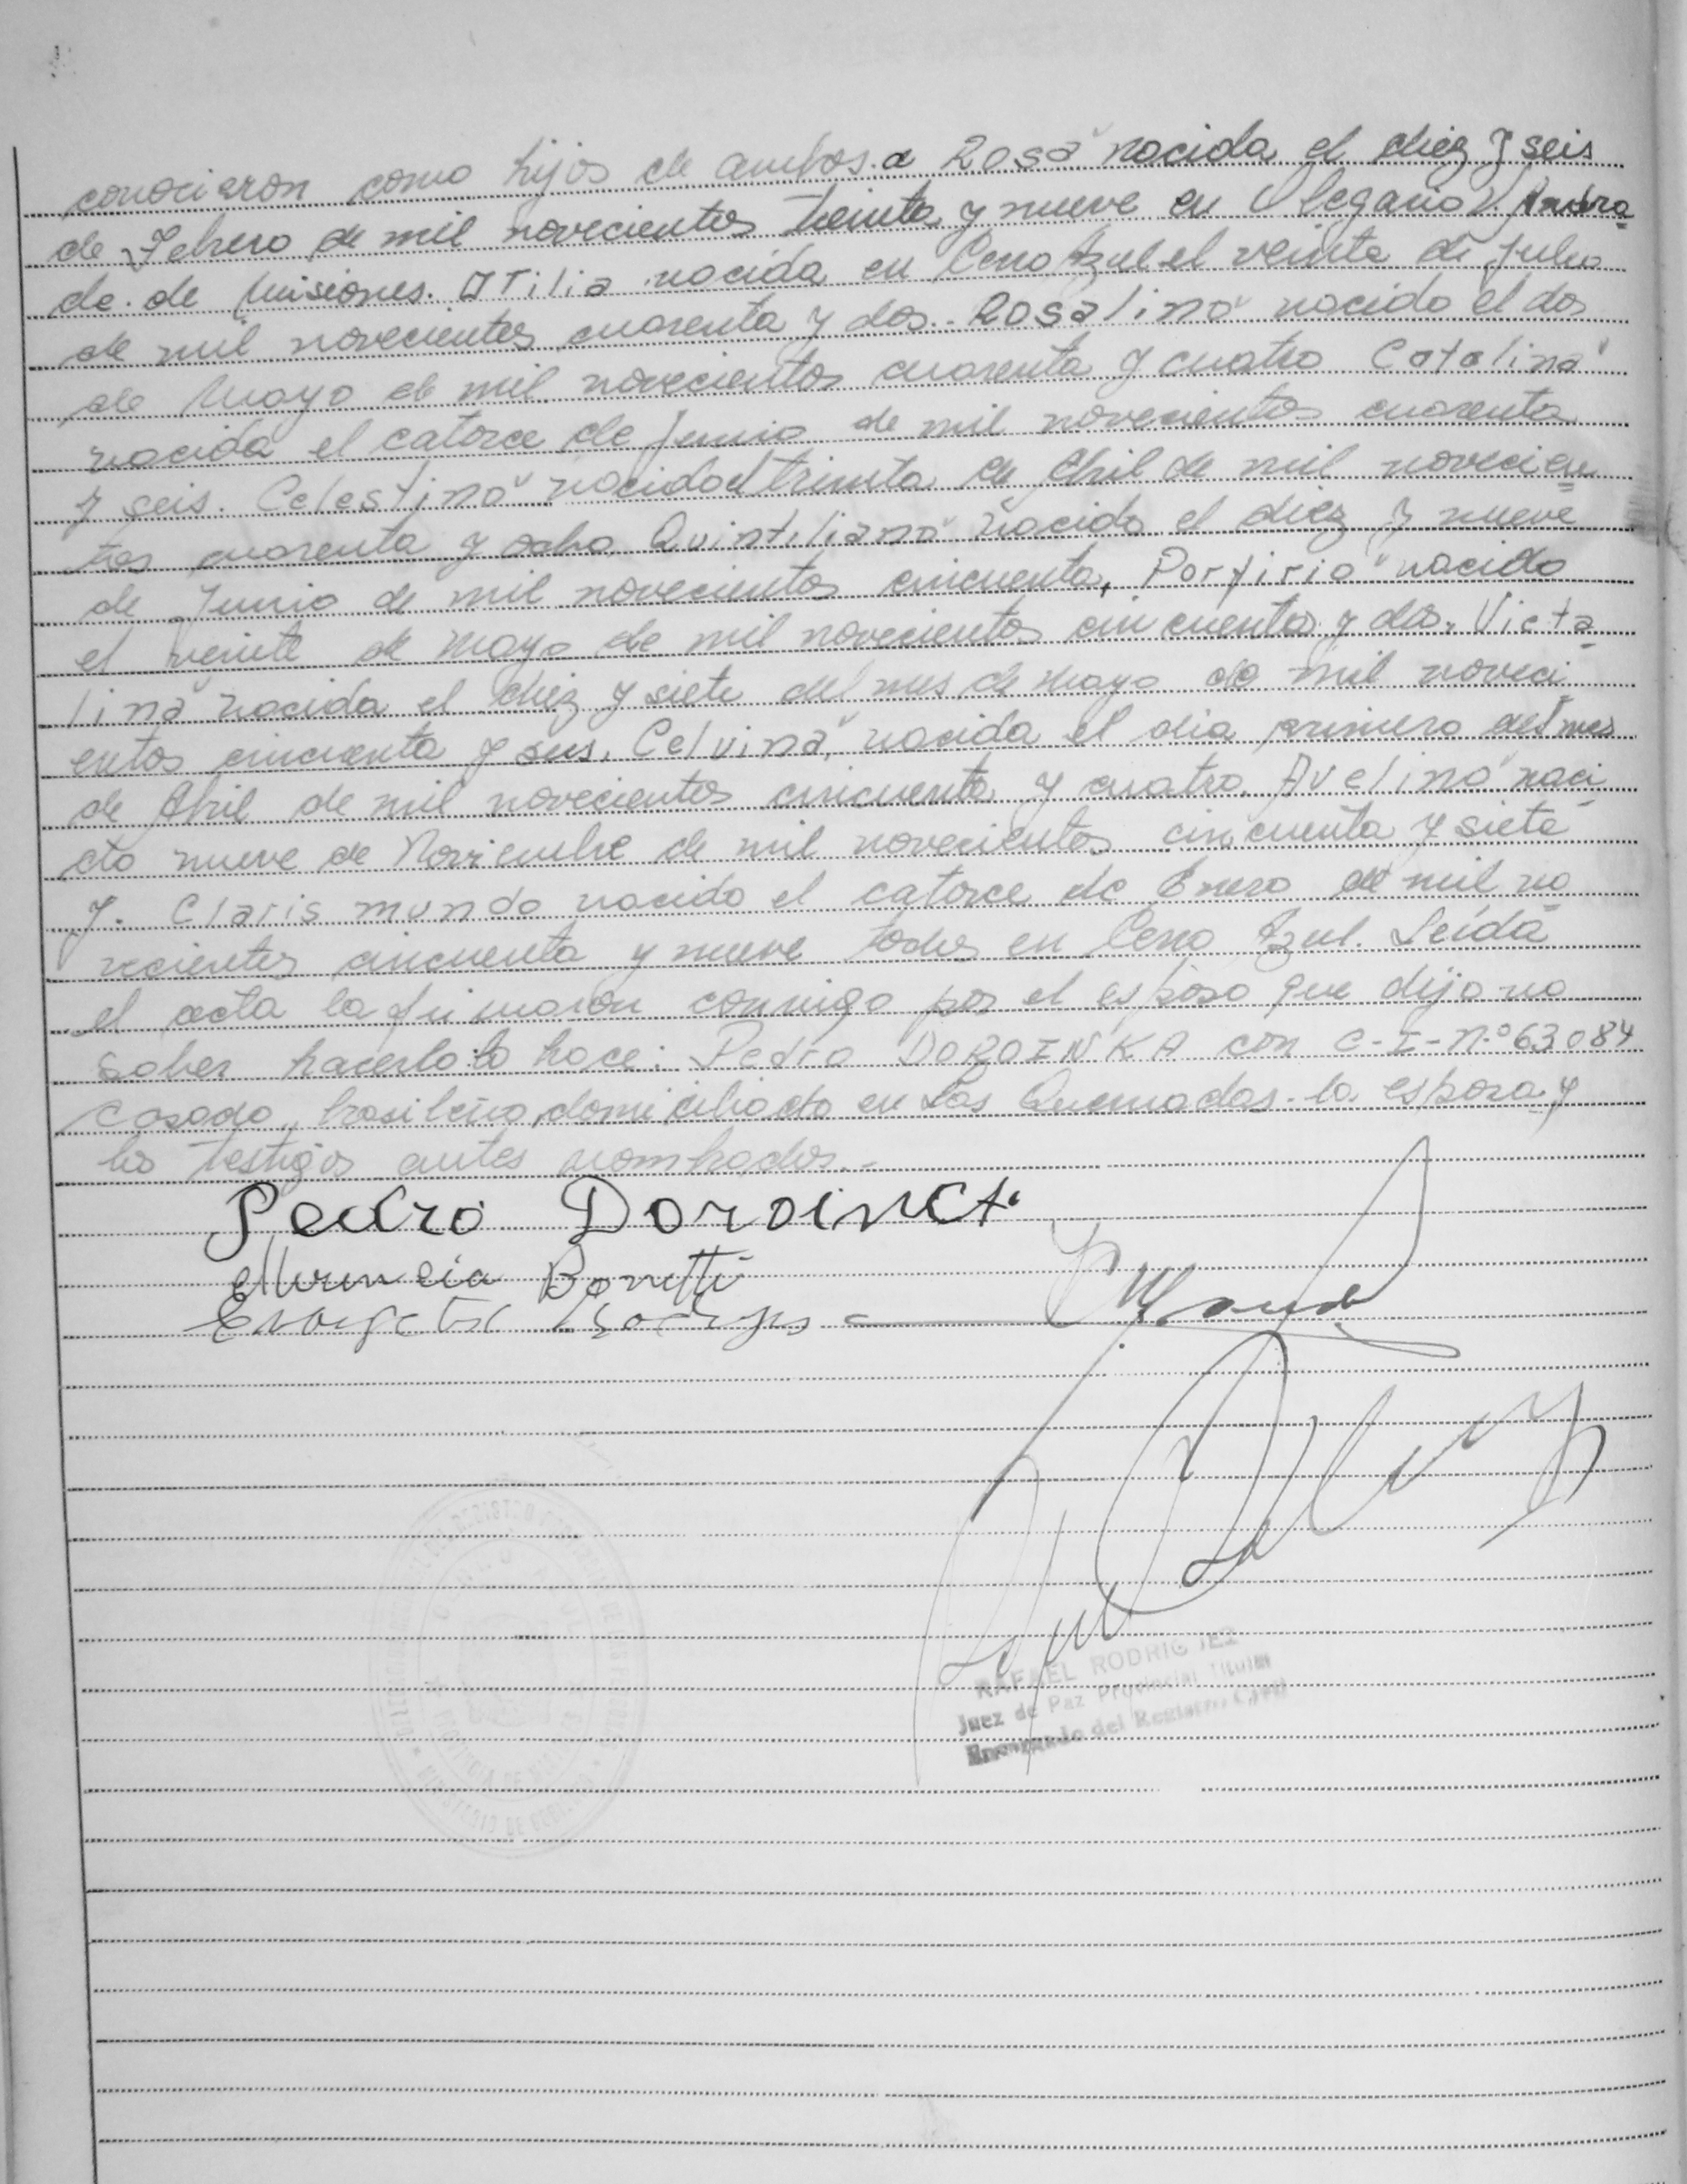 conocieron como hijos de ambos. a "Rosa" nacida el diez y seis
de Febrero de mil novecientos treinta y nueve en Olegario V. Andra
de. de Misiones. Otilia nacida en Cerro Azul el veinte de Julio
de mil novecientos cuarenta y dos.- Rosalino" nacido el dos
de Mayo de mil novecientos cuarenta y cuatro Catalina"
nacida el catorce de Junio de mil novecientos cuarenta
y seis. Celestino" nacido el treinta de Abril de mil novecien
tos cuarenta y ocho Quintiliano" nacido el diez y nueve
de Junio de mil novecientos cincuenta, Porfirio" nacido
el veinte de Mayo de mil novecientos cincuenta y dos. Victa
lina" nacida el diez y siete del mes de Mayo de mil noveci
entos cincuenta y seis. Celvina", nacida el día primero del mes
de Abril de mil novecientos cincuenta y cuatro. Avelino" naci
do nueve de Noviembre de mil novecientos cincuenta y siete
y. Clarismundo nacido el catorce de Enero de mil no
vecientos cincuenta y nueve todos en Cerro Azul. Leída
el acta la firmaron conmigo por el esposo que dijo no
saber hacerlo lo hace: Pedro DOROINKA con C-I-N.º 63084
casado, brasileño, domiciliado en Las Quemadas. la esposa y
los testigos antes nombrados.-
Pedro Doroinca
Bonetti
RAFAEL RODRIGUEZ
Juez de Paz Provincial Titular
Encargado del Registro Civil